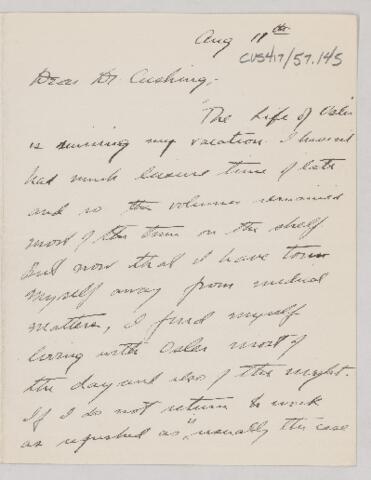 Aug 11th
CUS417/57.145
Dear Dr Cushing,
"The Life of Osler
is ruining my vacation. I have not
had much leisure time of late
and so the volumes remained
most of the time on the shelf
But now that I have torn
myself away from medical
matters, I find myself
living with Osler most of
the day and also of the night.
If I do not return to work
as refreshed as is usually the case